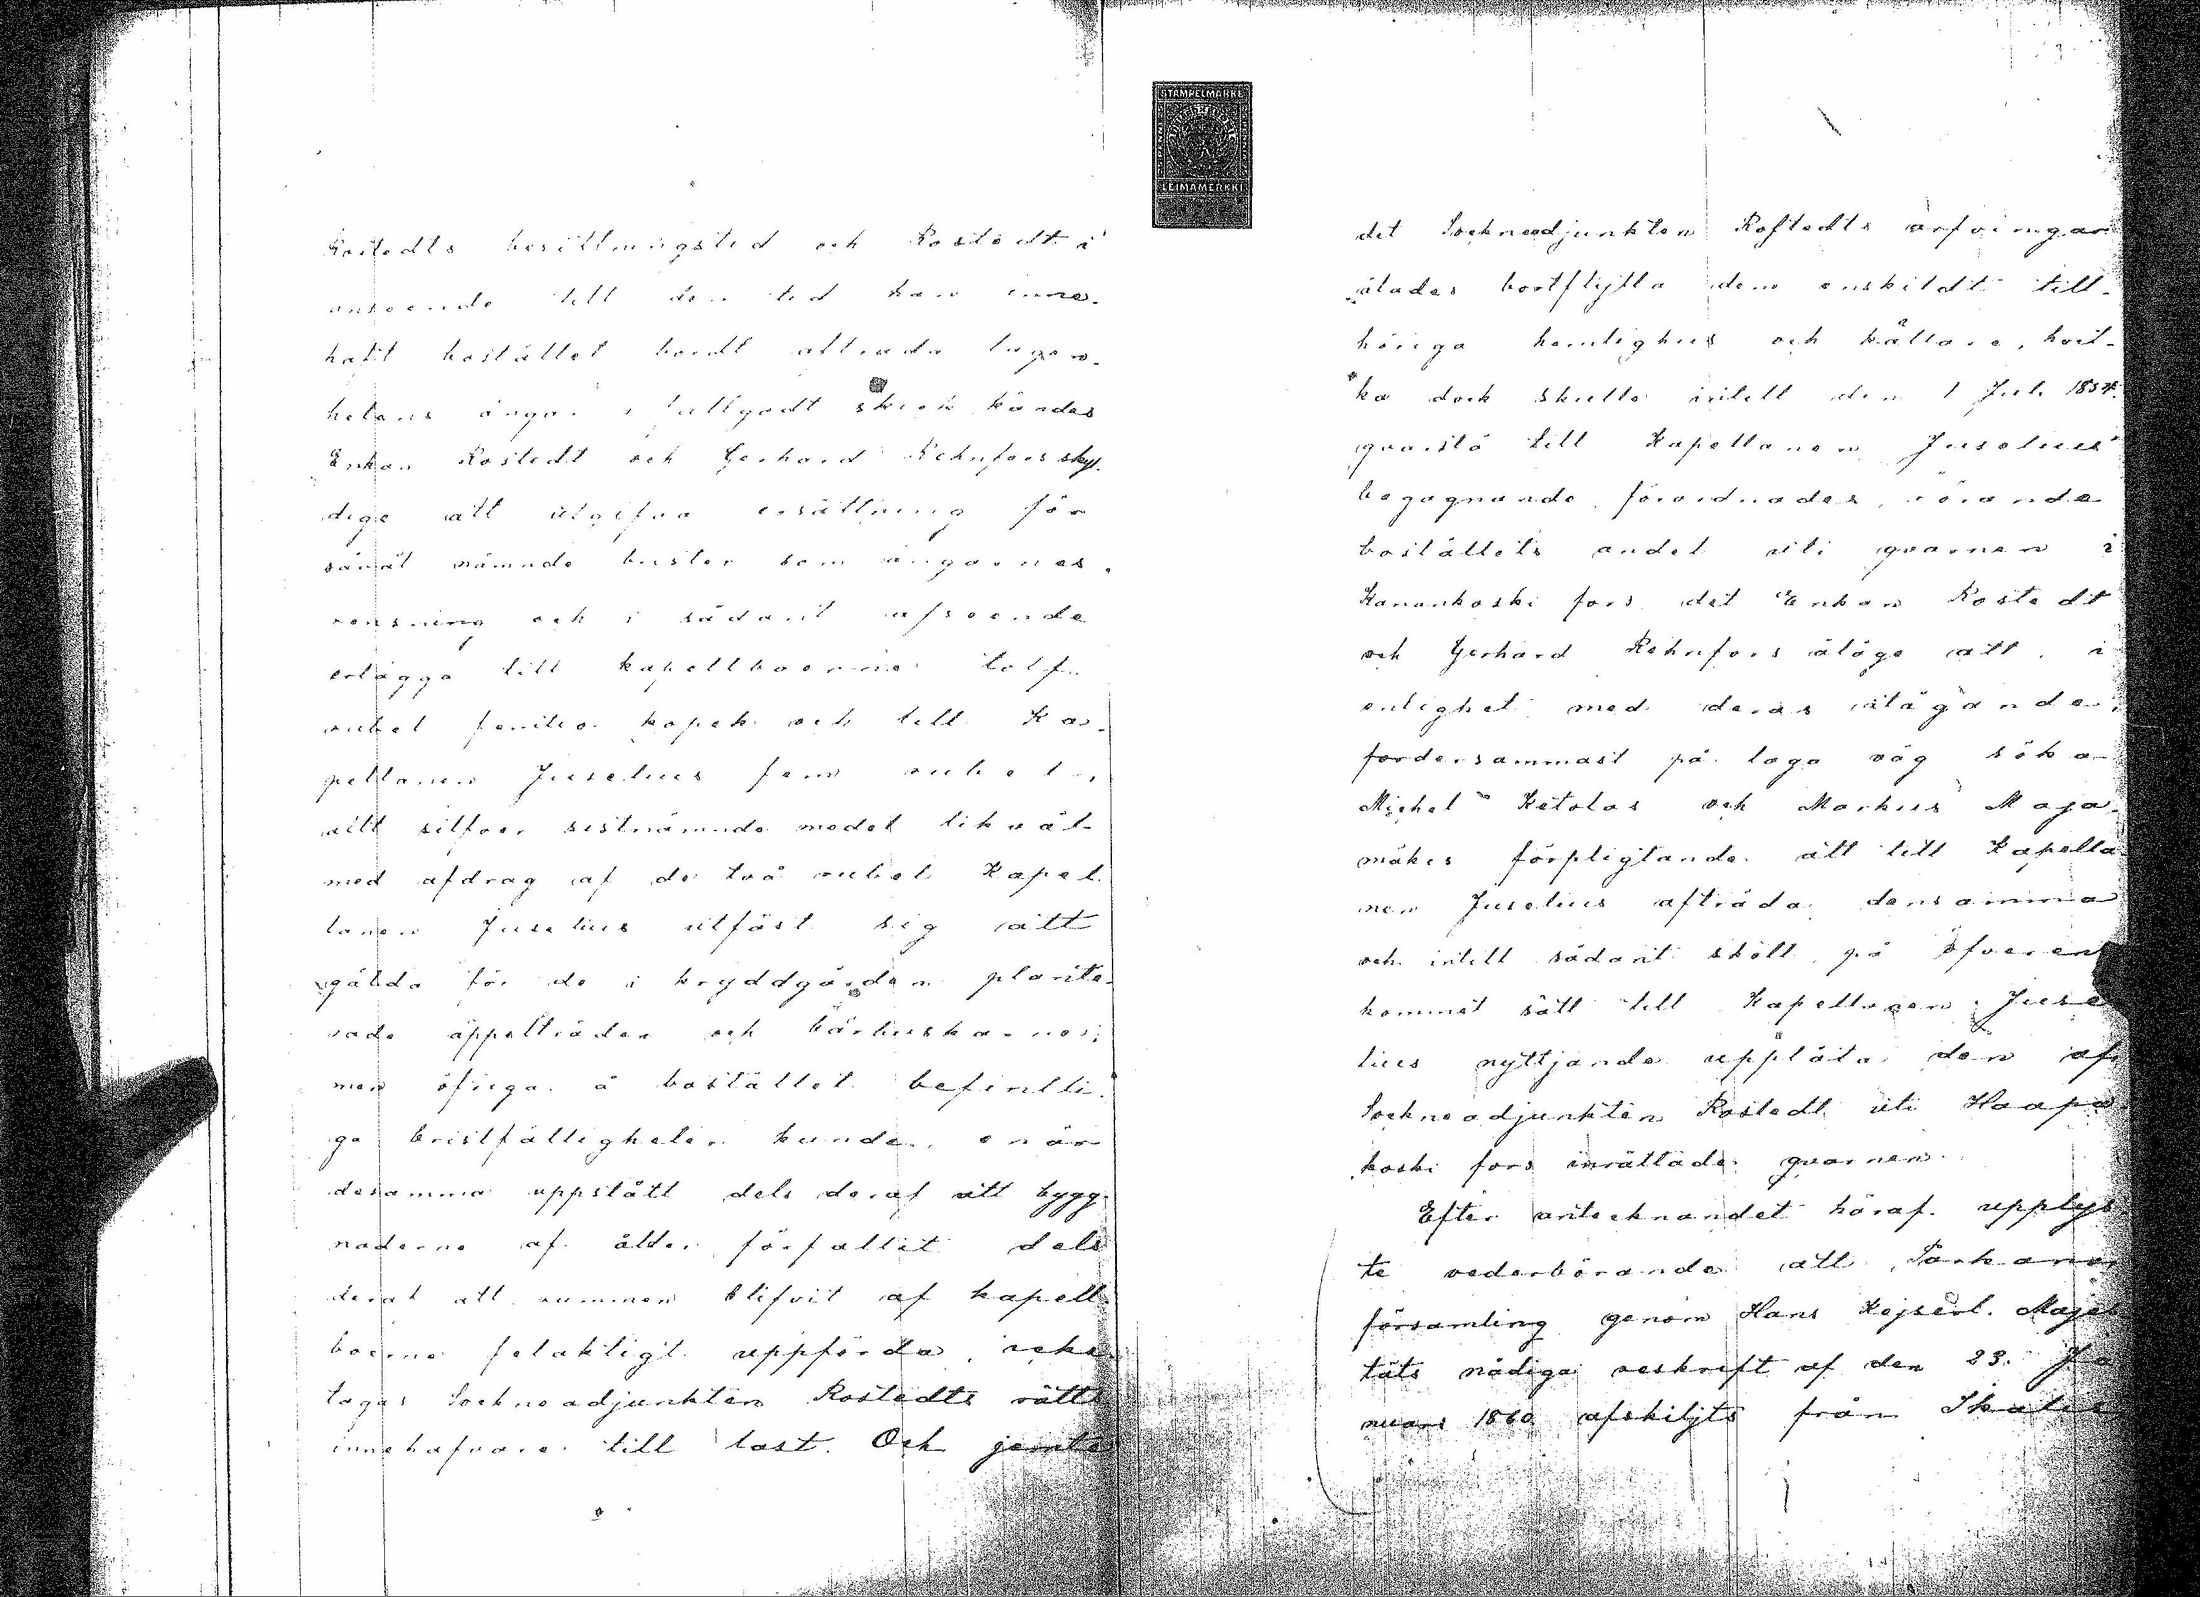 Rostedts besittningstid och Rostedt i
anseende till den tid han inne-
haft bostället bordt afträda lägen-
hetens ängar i fullgodt skick kändes
Enkan Rostedt och Gerhard Rehnfors skyl-
dige att utgifva ersättning för
såväl nämnde brister som ängarnes
rensning och i sådant afseende
erlägga till kapellboerne tolf
rubel femtio kopek och till Ka-
pellanen Juselius fem rubel,
allt silfver sistnämnde medel likväl
med afdrag af de två rubel Kapel
lanen Juselius utfäst sig att
gälda för de i kryddgården plante-
rade äppelträden och bärbuskarne;
men öfriga å bostället befintli-
ga bristfälligheter kunde, enär
desamma uppstått dels deraf att bygg-
naderne af ålder förfallit dels
deraf att rummen blifvit af kapell-
boerne felaktigt uppförda, icke
lagas Sockneadjunkten Rostedts rätts
innehafvare till last. Och jemte
STÄMPELMÄRKE
LEIMAMERKKI
det Sockneadjunkten Rostedts arfvingar
ålades bortflytta dem enskildt till-
höriga hemlighus och källare, hvil-
ka dock skulle intill den 1 Juli 1857
qvarstå till Kapellanen Juselius
begagnande, förordnades, rörande
boställets andel uti qvarnen i
Kanankoski fors det Enkan Rostedt
och Gerhard Rehnfors ålåge att, i
enlighet med deras åtagande,
fordersammast på laga väg söka
Michel Ketolas och Markus Maja-
mäkis förpligtande att till Kapella-
nen Juselius afträda densamma
och intill sådant skett, på öfverens
kommit sätt till Kapellanen Juse
lius nyttjande upplåta den af
Sockneadjunkten Rostedt uti Haapa-
koski fors inrättade qvarnen.
Efter antecknandet häraf upplys-
te vederbörande att Parkano
församling genom Hans Kejserl. Majes
täts nådiga reskript af den 23. Ja
nuari 1860 afskiljts från Ikalis